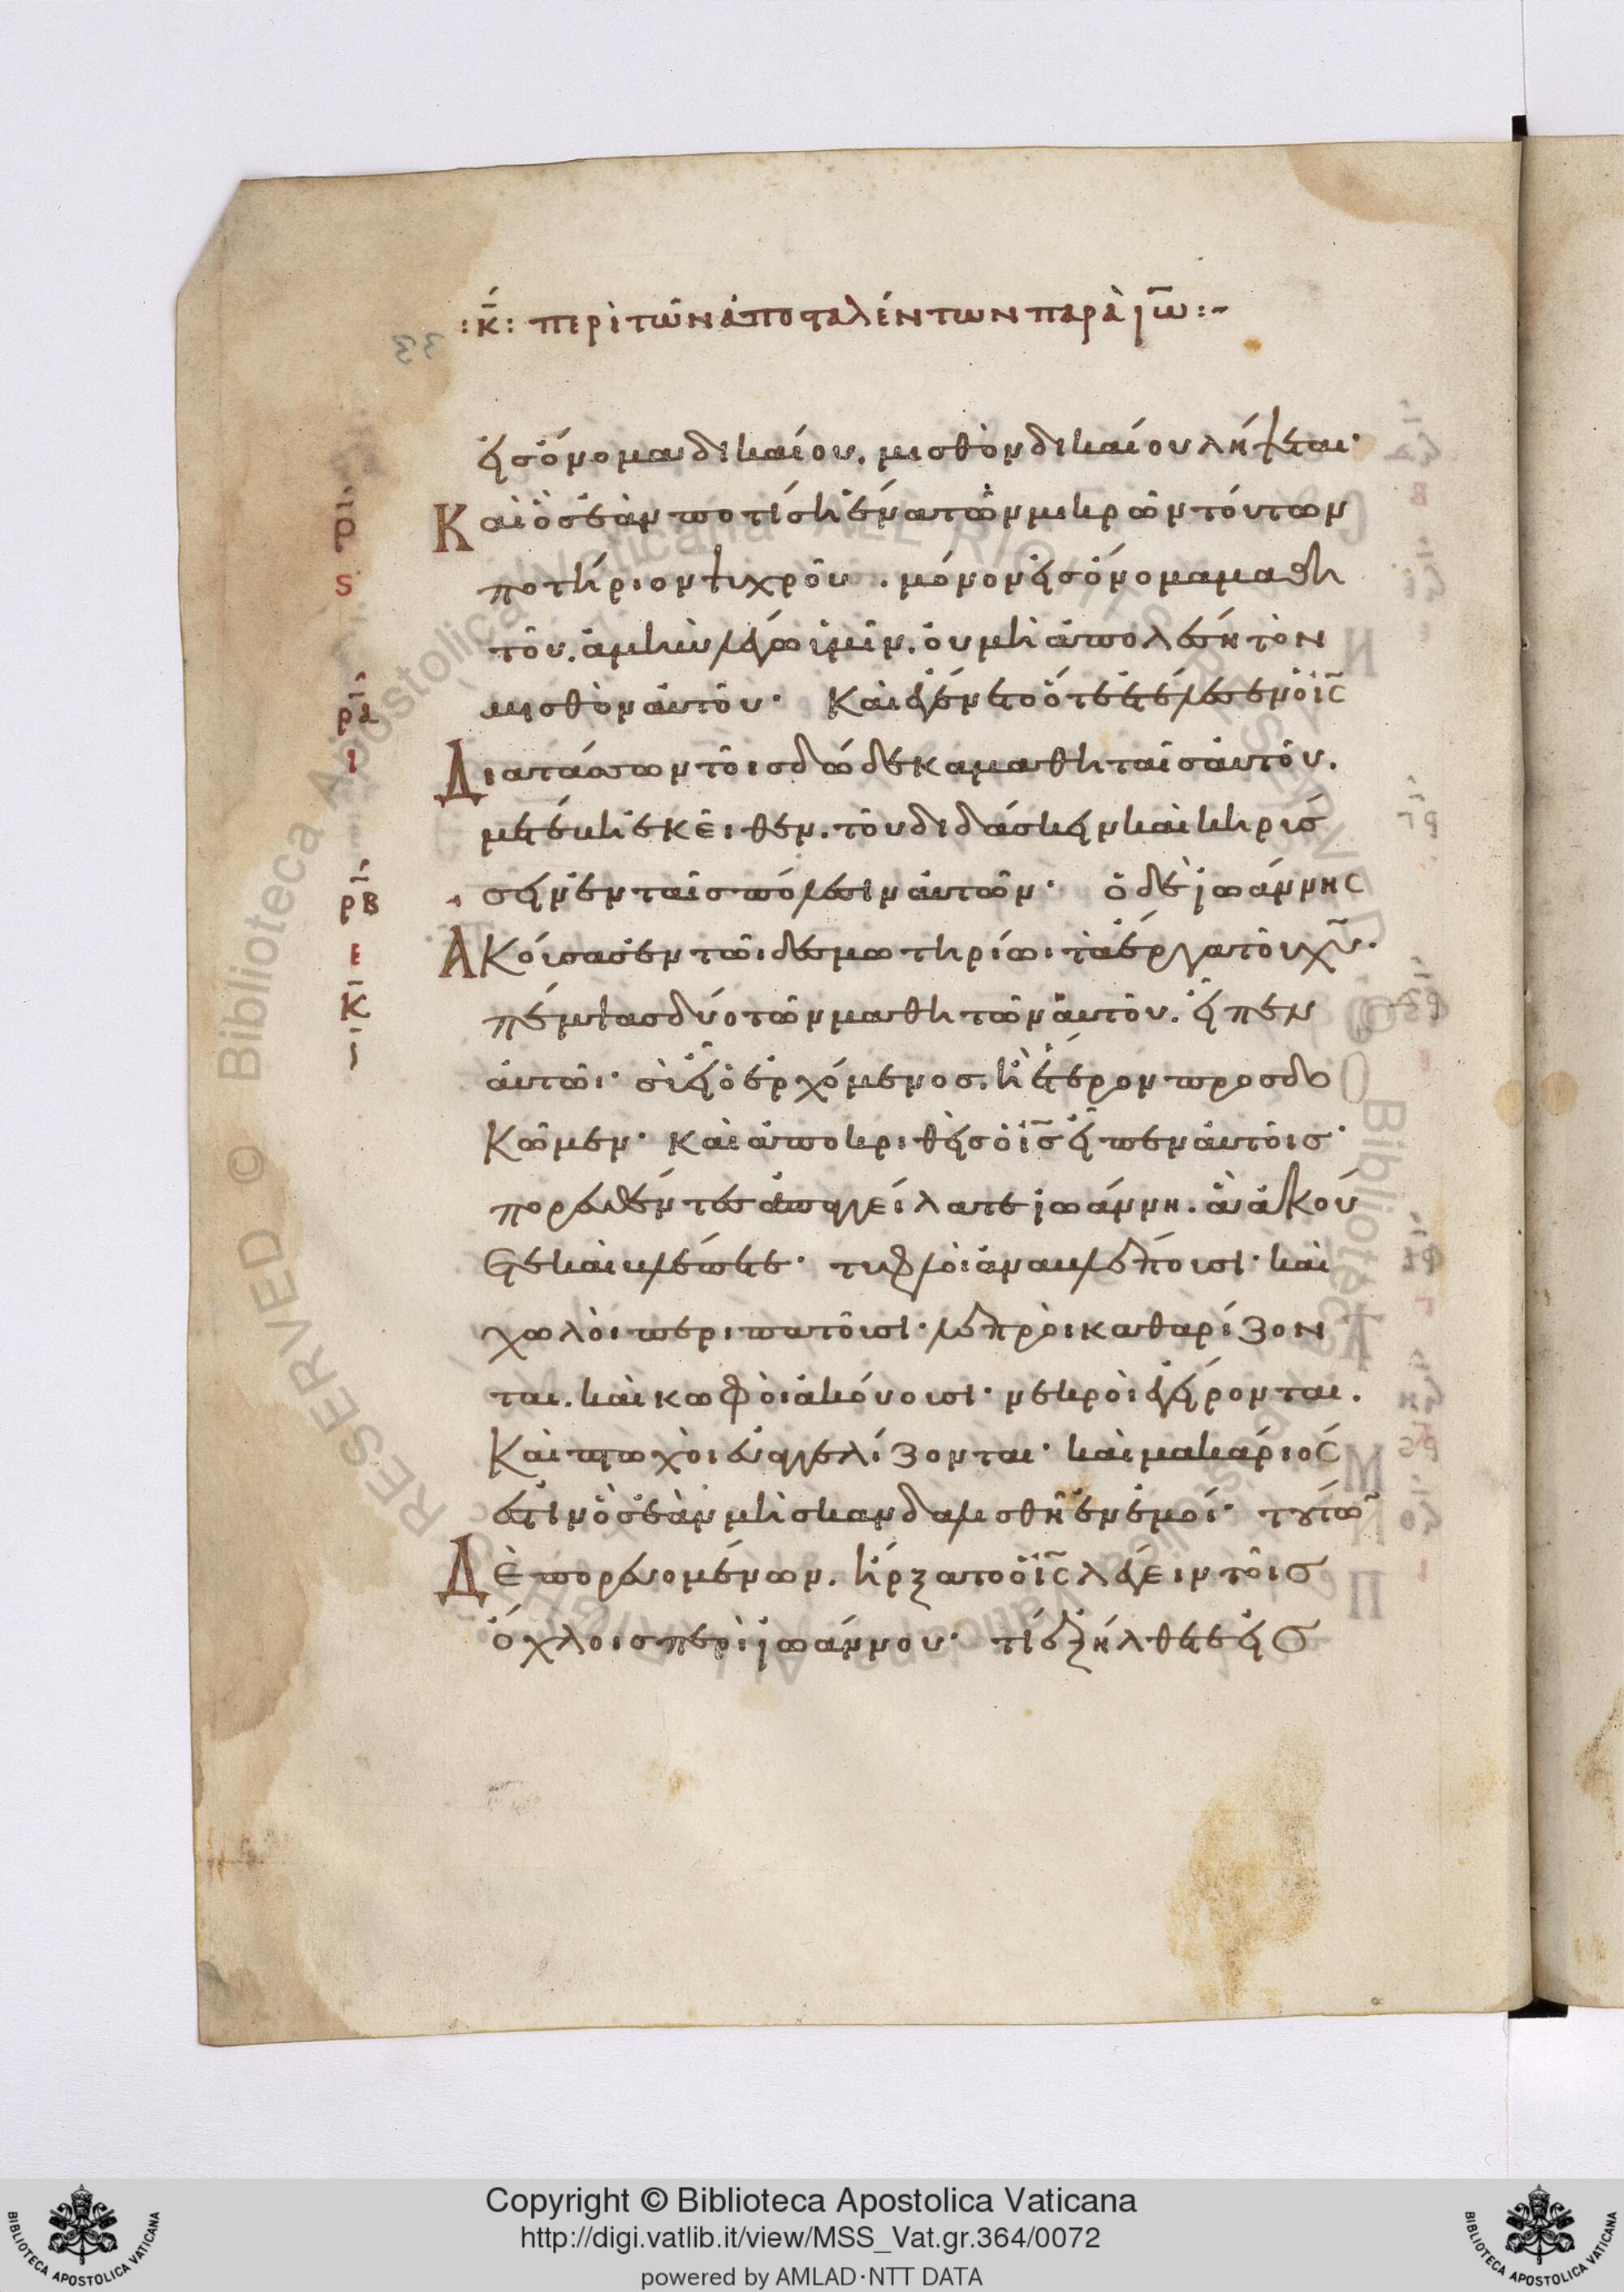 :κ̅: περὶ τῶν ἀποσταλέντων παρὰ ἰω̅:~
εἰς ὄνομα δικαίου. μισθὸν δικαίου λήψεται·
Καὶ ὃς ἐὰν ποτίσῃ ἕνα τῶν μικρῶν τούτων
ποτήριον ψυχροῦ. μόνον εἰς ὄνομα μαθη
τοῦ. ἀμὴν λέγω ὑμῖν. οὐ μὴ ἀπολέσῃ τὸν
μισθὸν αὐτοῦ· Καὶ ἐγένετο ὅτε ἐτέλεσεν ὁ ι̅ς̅
Διατάσσων τοῖς δώδεκα μαθηταῖς αὐτοῦ.
μετέβη ἐκεῖθεν. τοῦ διδάσκειν καὶ κηρύσ
σειν ἐν ταῖς πόλεσιν αὐτῶν· ὁ δὲ ἰωάννης
Ἀκούσας ἐν τῶι δεσμωτηρίωι τὰ ἔργα τοῦ χ̅υ̅.
πέμψας δύο τῶν μαθητῶν αὐτοῦ. εἶπεν
αὐτῶι· σὺ εἶ ὁ ἐρχόμενος. ἢ ἕτερον προσδο
κῶμεν· καὶ ἀποκριθεὶς ὁ ι̅ς̅ εἶπεν αὐτοῖς·
πορευθέντες ἀπαγγείλατε ἰωάννῃ. ἃ ἀκού
ετε καὶ βλέπετε· τυφλοὶ ἀναβλέπουσι· καὶ
χωλοὶ περιπατοῦσι· λεπροὶ καθαρίζον
ται. καὶ κωφοὶ ἀκούουσι· νεκροὶ ἐγείρονται.
Καὶ πτωχοὶ εὐαγγελίζονται· καὶ μακάριός
ἐστιν ὃς ἐὰν μὴ σκανδαλισθῇ ἐν ἐμοί· τούτων
Δὲ πορευομένων. ἤρξατο ὁ ι̅ς̅ λέγειν τοῖς
ὄχλοις περὶ ἰωάννου· τί ἐξήλθετε εἰς
ρ̅
ς
ρ̅α
ι
ρ̅β
ε
κ̅
ι̅
33
Copyright © Biblioteca Apostolica Vaticana
http://digi.vatlib.it/view/MSS_Vat.gr.364/0072
powered by AMLAD·NTT DATA
BIBLIOTECA APOSTOLICA VATICANA
BIBLIOTECA APOSTOLICA VATICANA